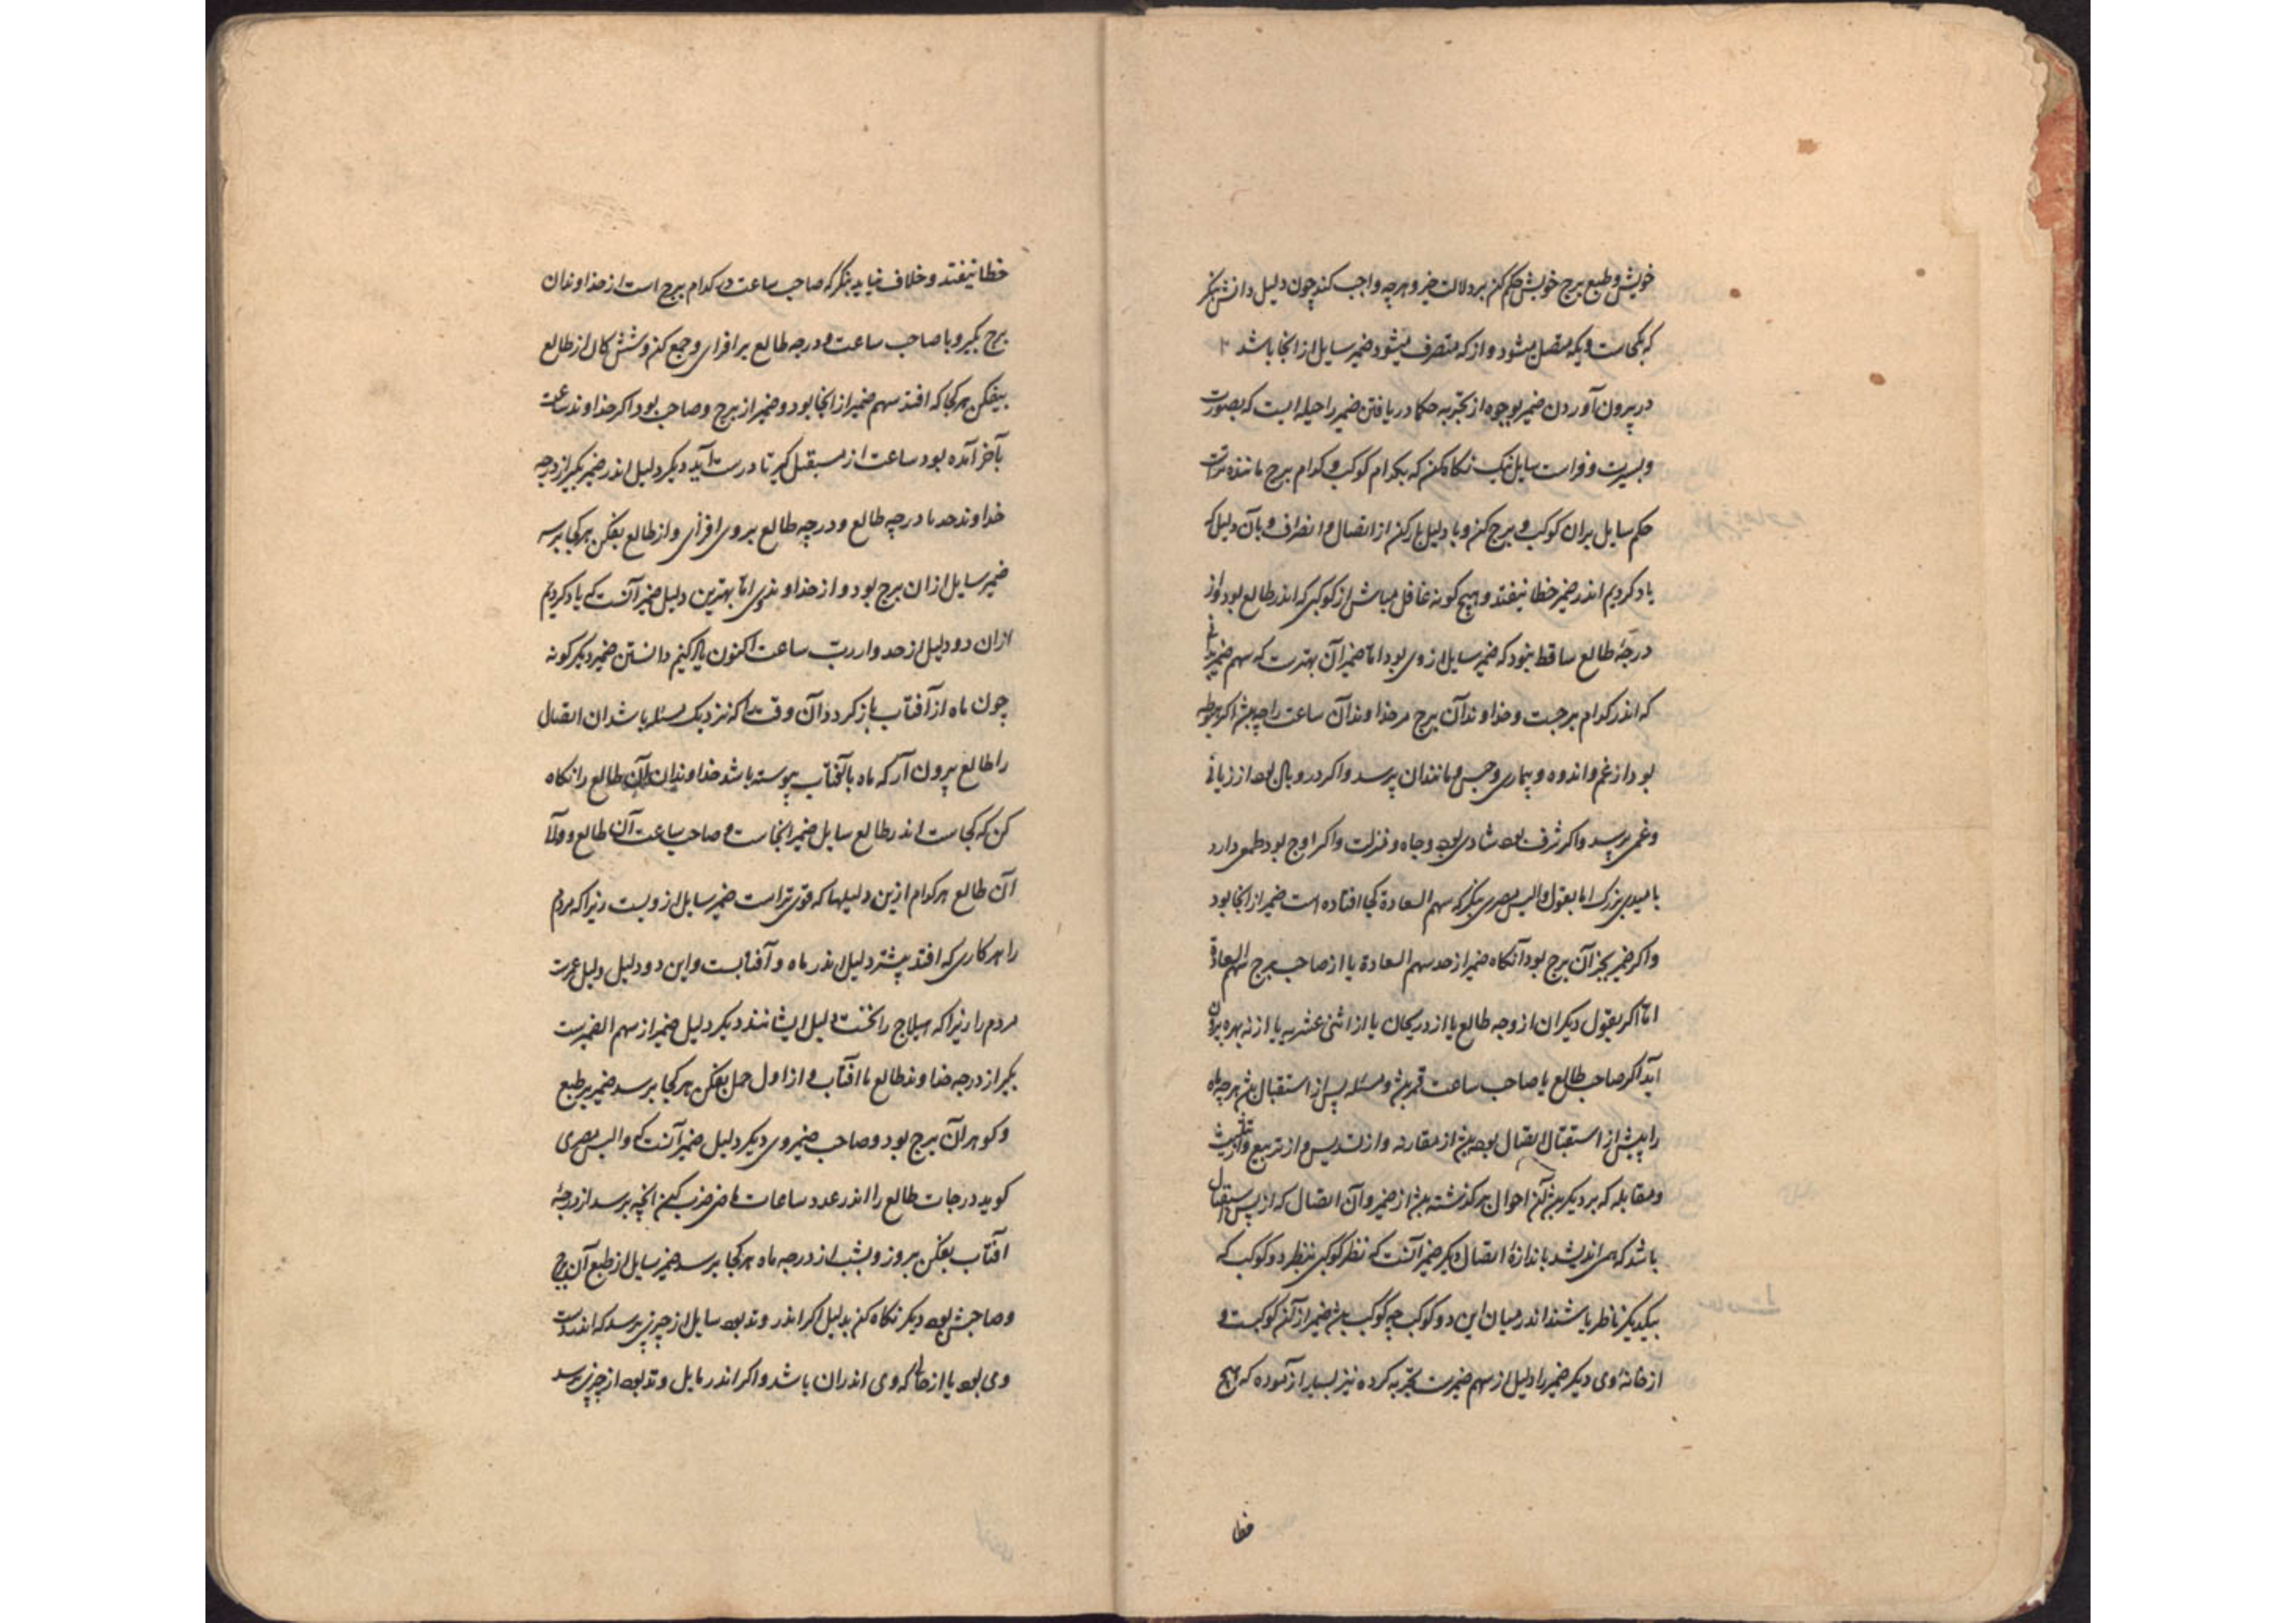 خویش و طبع برج خویش حکم کن بر دلالت خیر و هرچه واجب کند چون دلیل دانش بنگر
که کجاست و بکه متصل میشود و از که منصرف میشود ضمیر سایل از انجا باشد
در بیرون آوردن ضمیر بوجوه از تجربه حکما دریافتن ضمیر را حیله ایست که بصورت
و بسیرت و فراست سایل نیک نکاه کن که بکدام کوکب و کدام برج ماننده
حکم سایل بران کوکب و برج کن و با دلیل یار کن از اتصال و انصراف و بآن دلیل که
یاد کردیم اندر ضمیر خطا نیفتد و هیچ کونه غافل مباش از کوکبی که اندر طالع بود و از
درجهٔ طالع ساقط نبود که ضمیر سایل از وی بود اما ضمیر آن بهترست که سهم ضمیر بدانی
که اندر کدام برجست و خداوند آن برج مر خداوند آن ساعت را
بود از غم و اندوه و بیماری و حبس و مانندان پرسد و اکر در وبال بود از زیانی
و غمی پرسد و اکر شرف بود شادی بود و جاه و منزلت و اکر اوج بود طمعی دارد
بامیدی بزرک اما بقول والیس مصری بنکر که سهم السعادة کجا افتاده است ضمیر از انجا بود
و اکر ضمیر بجز آن برج بود آنکاه ضمیر از حد سهم السعادة یا از صاحب برج سهم السعادة
اما اکر بقول دیکران از وجه طالع یا از دریجان یا از اثنی عشریه یا از نه بهره بیرون
آید اکر صاحب طالع یا صاحب ساعت قمر بود و مسئله پس از استقبال بود هرچه ماه
را پیش از استقبال اتصال بود از مقارنه و از تسدیس و از تربیع و تثلیث
و مقابله که بر دیکر آن احوال بر کذشته از ضمیر و آن اتصال که از پس استقبال
باشد که می اندیشد باندازهٔ اتصال دیکر ضمیر آنست که نظر کوکبی بنظر دو کوکب که
بیکدیکر ناظر باشند اندر میان این دو کوکب چه کوکب ضمیر از آن کوکبست و
از خانهٔ وی دیکر ضمیر را دلیل از سهم ضمیرست تجربه کرده نیز بسیار آزموده که هیچ
خطا
خطا نیفتد و خلاف نیاید بنکر که صاحب ساعت در کدام برج است از خداوندان
برج بکیر و با صاحب ساعت و درجه طالع بر افزای و جمع کن و شش کان از طالع
بیفکن هر کجا که افتد سهم ضمیر از انجا بود و ضمیر از برج و صاحب بود اکر خداوند ساعت
بآخر آمده بود ساعت از مستقبل کیر تا درست آید دیکر دلیل اندر ضمیر بکیر از درجه
خداوند حد تا درجه طالع و درجه طالع بروی افزای و از طالع بفکن هر کجا برسد
ضمیر سایل از ان برج بود و از خداوند وی اما بهترین دلیل ضمیر آنست که یاد کردیم
ازان دو دلیل از حد و از رب ساعت اکنون یاد کنیم دانستن ضمیر دیکر کونه
چون ماه از آفتاب باز کردد آن وقت را که نزدیک مسئله باشد ان اتصال
را طالع بیرون آر که ماه با آفتاب پیوسته باشد خداوندان آن طالع را نکاه
کن که کجاست اندر طالع سایل ضمیر انجاست و صاحب ساعت آن طالع و
آن طالع هر کدام ازین دلیلها که قوی تر است ضمیر سایل از ویست زیرا که مردم
را هر کاری که افتد بیشتر دلیل اندر ماه و آفتابست و این دو دلیل دلیل عمرست
مردم را زیرا که هیلاج را نخست دلیل ایشانند دیکر دلیل ضمیر از سهم الضمیرست
بکیر از درجه خداوند طالع تا آفتاب و از اول حمل بفکن هر کجا برسد ضمیر بر طبع
و کوهر آن برج بود و صاحب ضمیر وی دیکر دلیل ضمیر آنست که والیس مصری
کوید درجات طالع را اندر عدد ساعات ماضی ضرب کن انچه برسد از درجهٔ
آفتاب بفکن بروز و بشب از درجه ماه هر کجا برسد ضمیر سایل از طبع آن برج
و صاحبش بود دیکر نکاه کن بدلیل اکر اندر وتد بود سایل از چیزی پرسد که اندر دست
وی بود یا از خانهٔ که وی اندران باشد و اکر اندر مایل وتد بود از چیزی پرسد